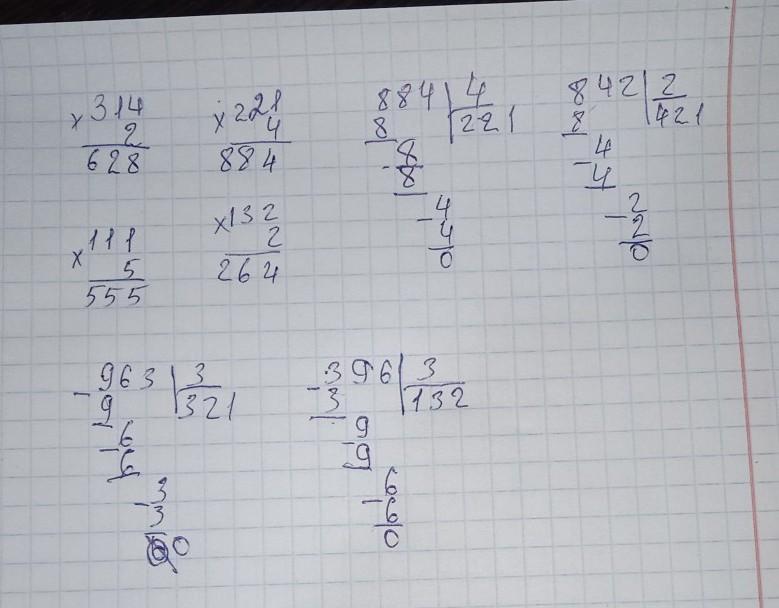 × 314
2
628
× 221
4
884
884 | 4
8 221
- 8
8
- 4
4
0
842 | 2
8 421
- 4
4
- 2
2
0
× 111
5
555
× 132
2
264
- 963 | 3
9 321
- 6
6
- 3
3
0
- 396 | 3
3 132
- 9
9
- 6
6
0